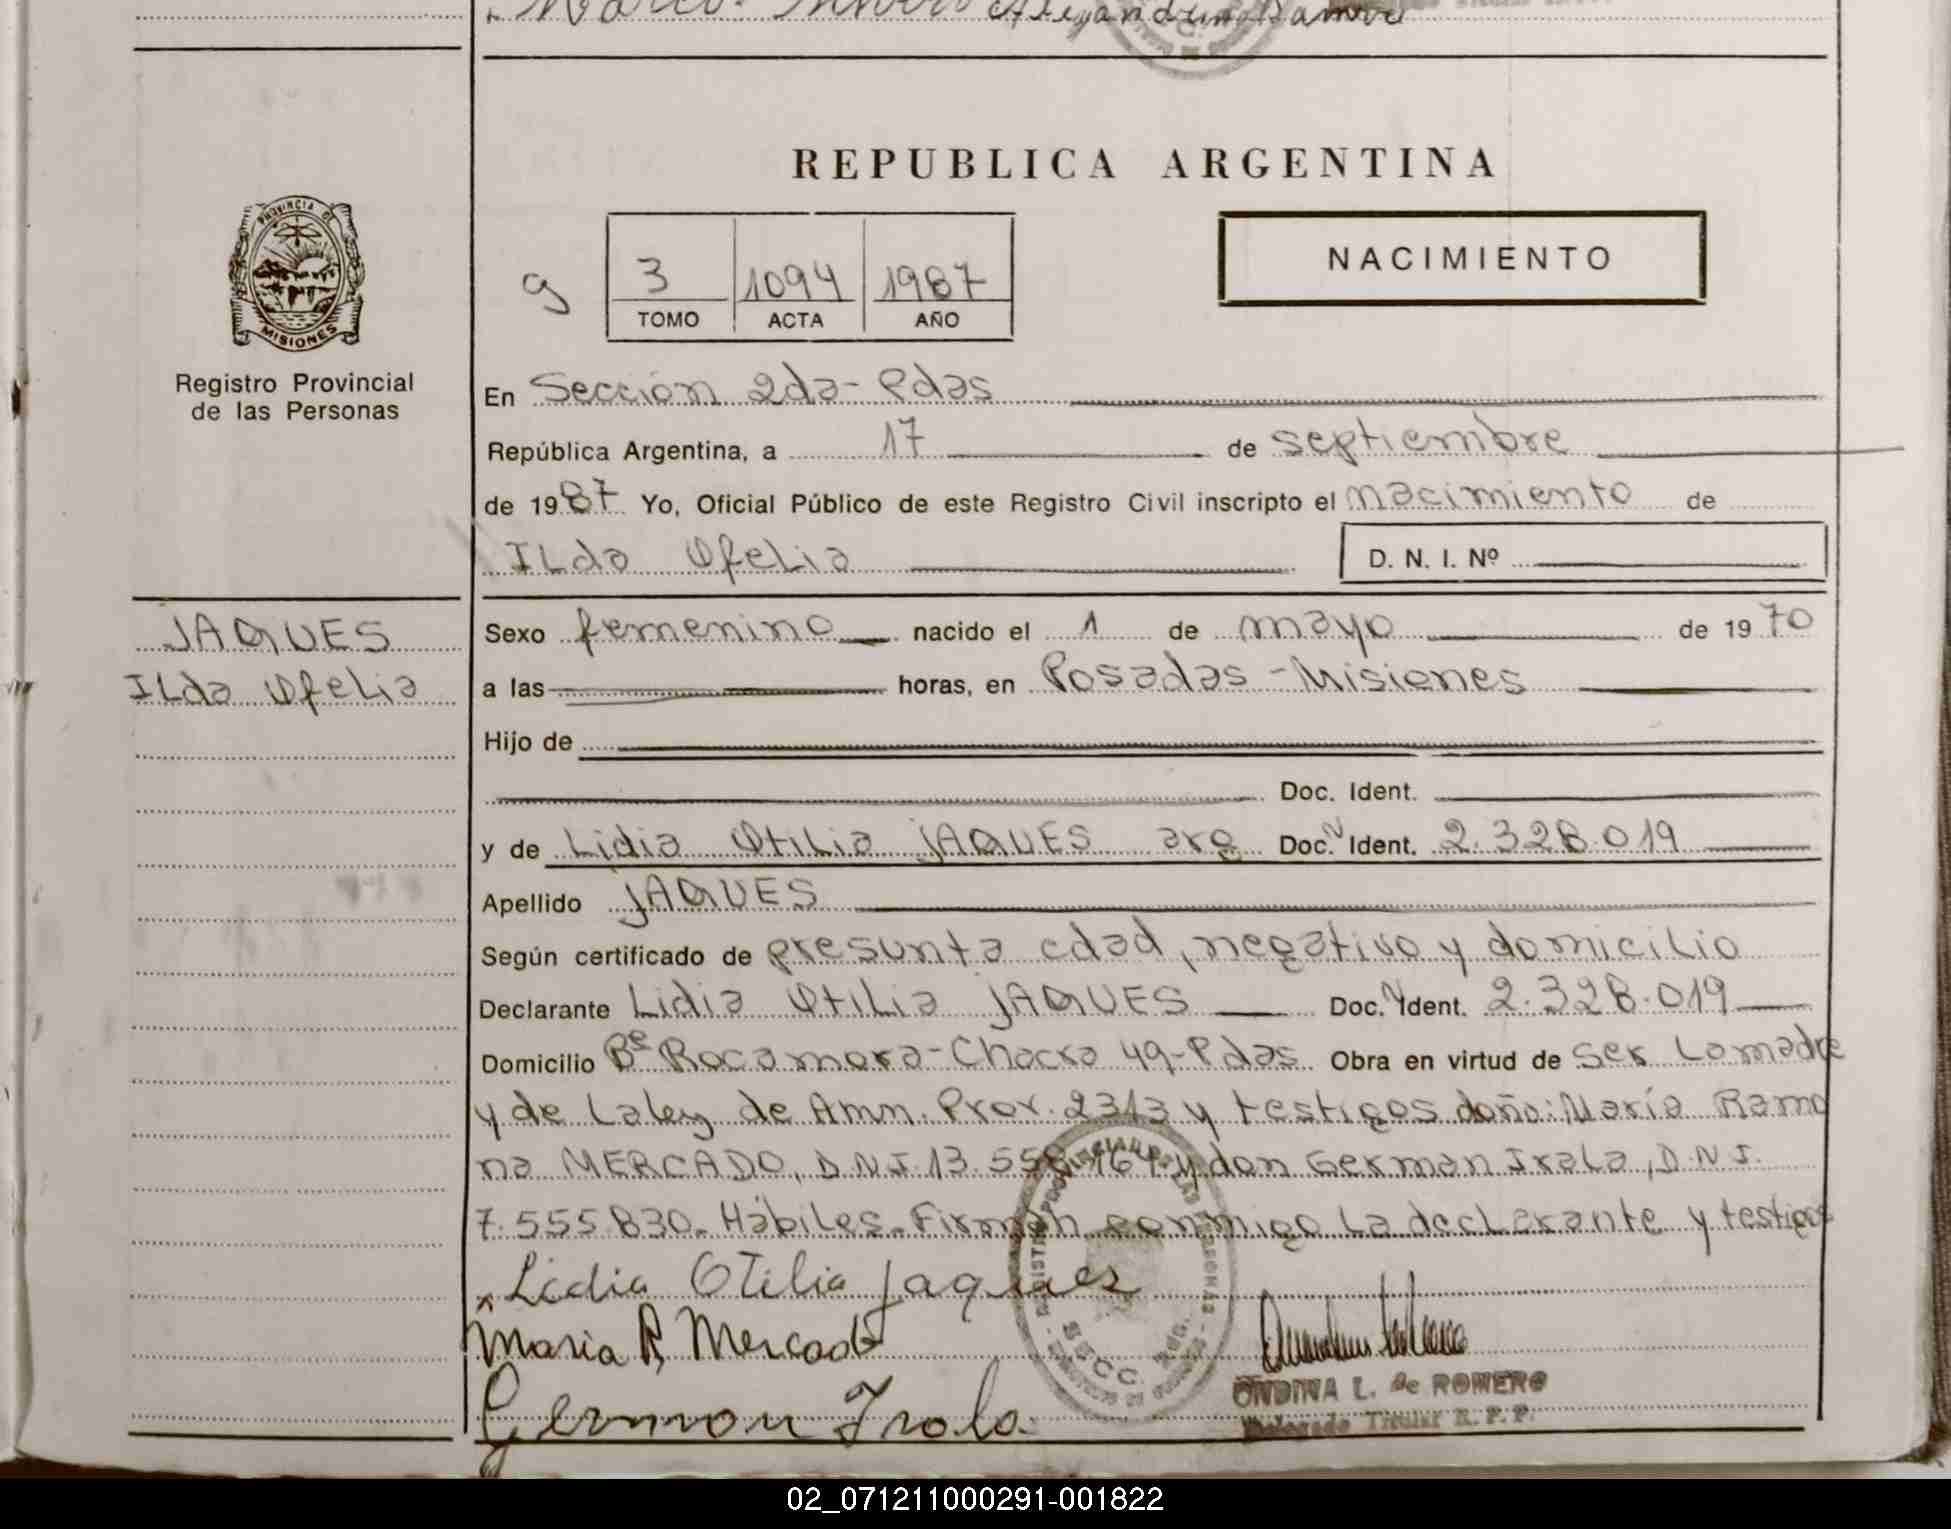 REPUBLICA ARGENTINA
PROVINCIA DE
MISIONES
Registro Provincial
de las Personas
g
3 1094 1987
TOMO ACTA AÑO
NACIMIENTO
En Sección 2da- Pdas
República Argentina, a 17 de septiembre
de 1987 Yo, Oficial Público de este Registro Civil inscripto el nacimiento de
ILda Ofelia D. N. I. Nº
JAQUES
ILda Ofelia
Sexo femenino nacido el 1 de mayo de 1970
a las horas, en Posadas - Misiones
Hijo de
Doc. Ident.
y de Lidia Otilia JAQUES arg Doc. Ident. 2.328.019
Apellido JAQUES
Según certificado de presunta edad, negativo y domicilio
Declarante Lidia Otilia JAQUES Doc. Ident. 2.328.019
Domicilio Bº Rocamora - Chacra 49 - Pdas. Obra en virtud de ser La madre
y de La Ley de Amn. Prov. 2313 y testigos doña: María Ramo
na MERCADO, D.N.I. 13. y don German Irala, D.N.I.
7.555.830. Hábiles. Firman conmigo La declarante y testigos
Lidia Otilia Jaques
Maria R, Mercado
German Irala.
SECC.
ONDINA L. de ROMERO
Delegado Titular R. P. P.
02_071211000291-001822